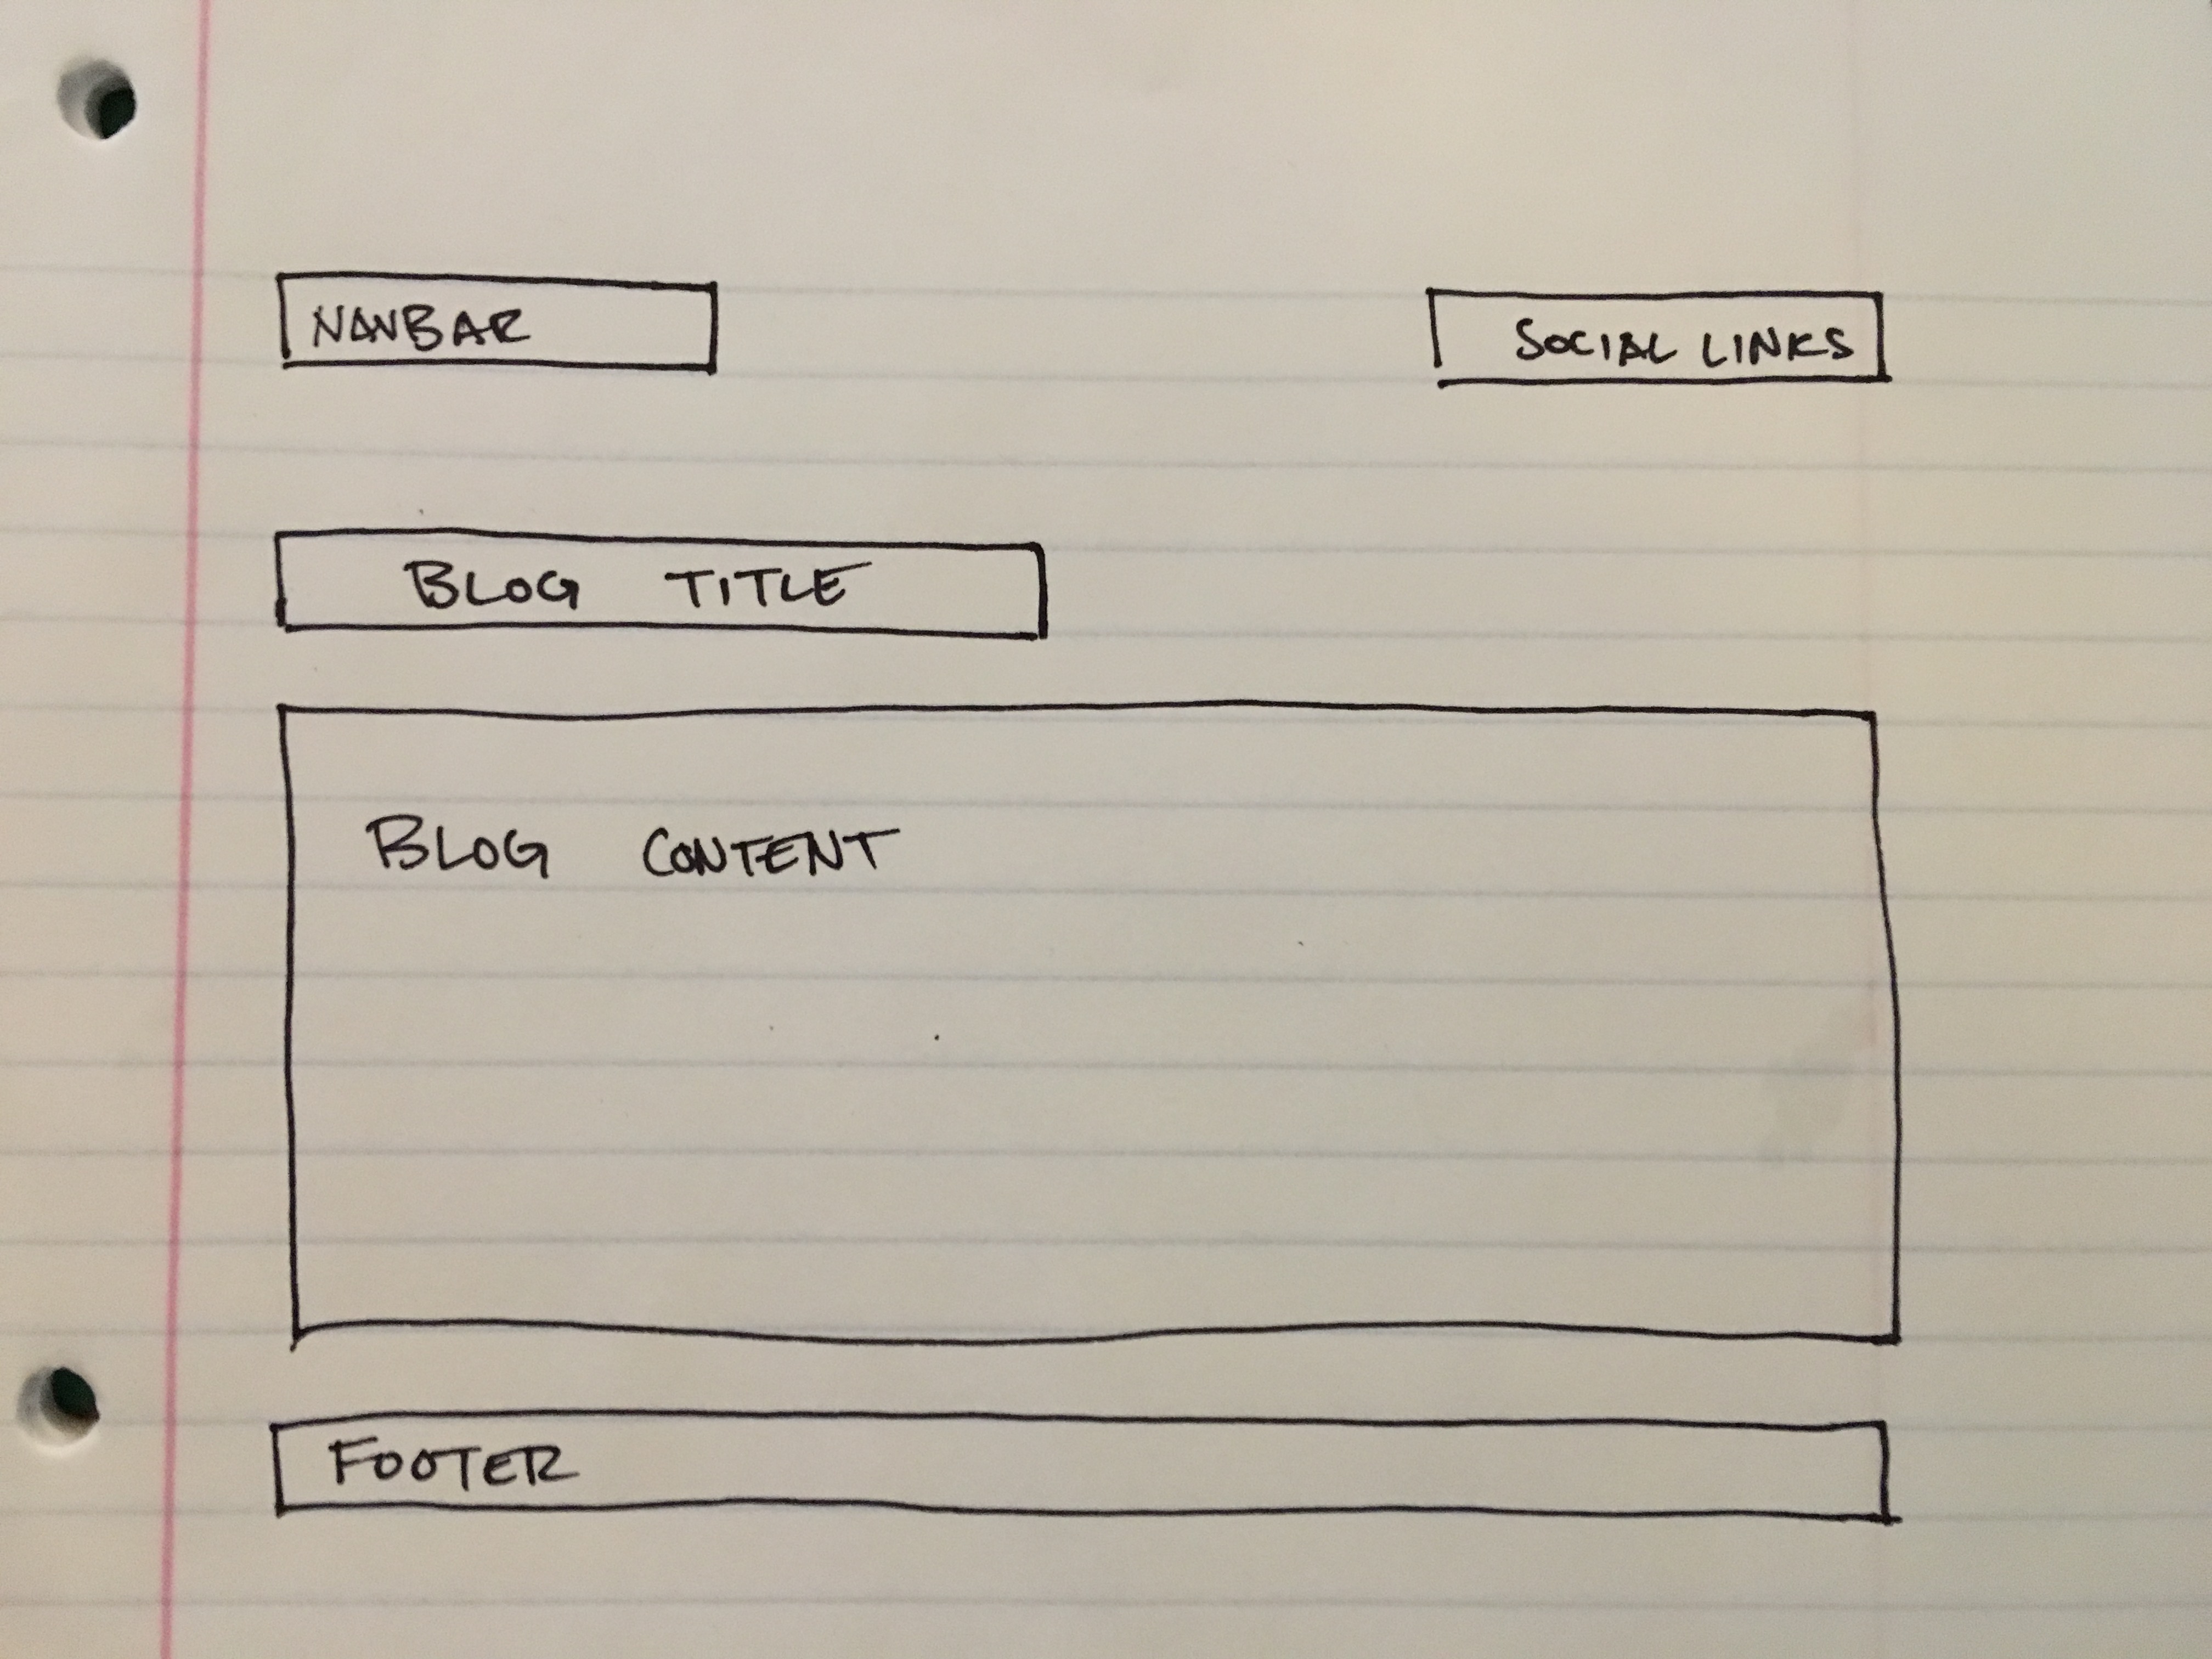 NAVBAR
SOCIAL LINKS
BLOG TITLE
BLOG CONTENT
FOOTER